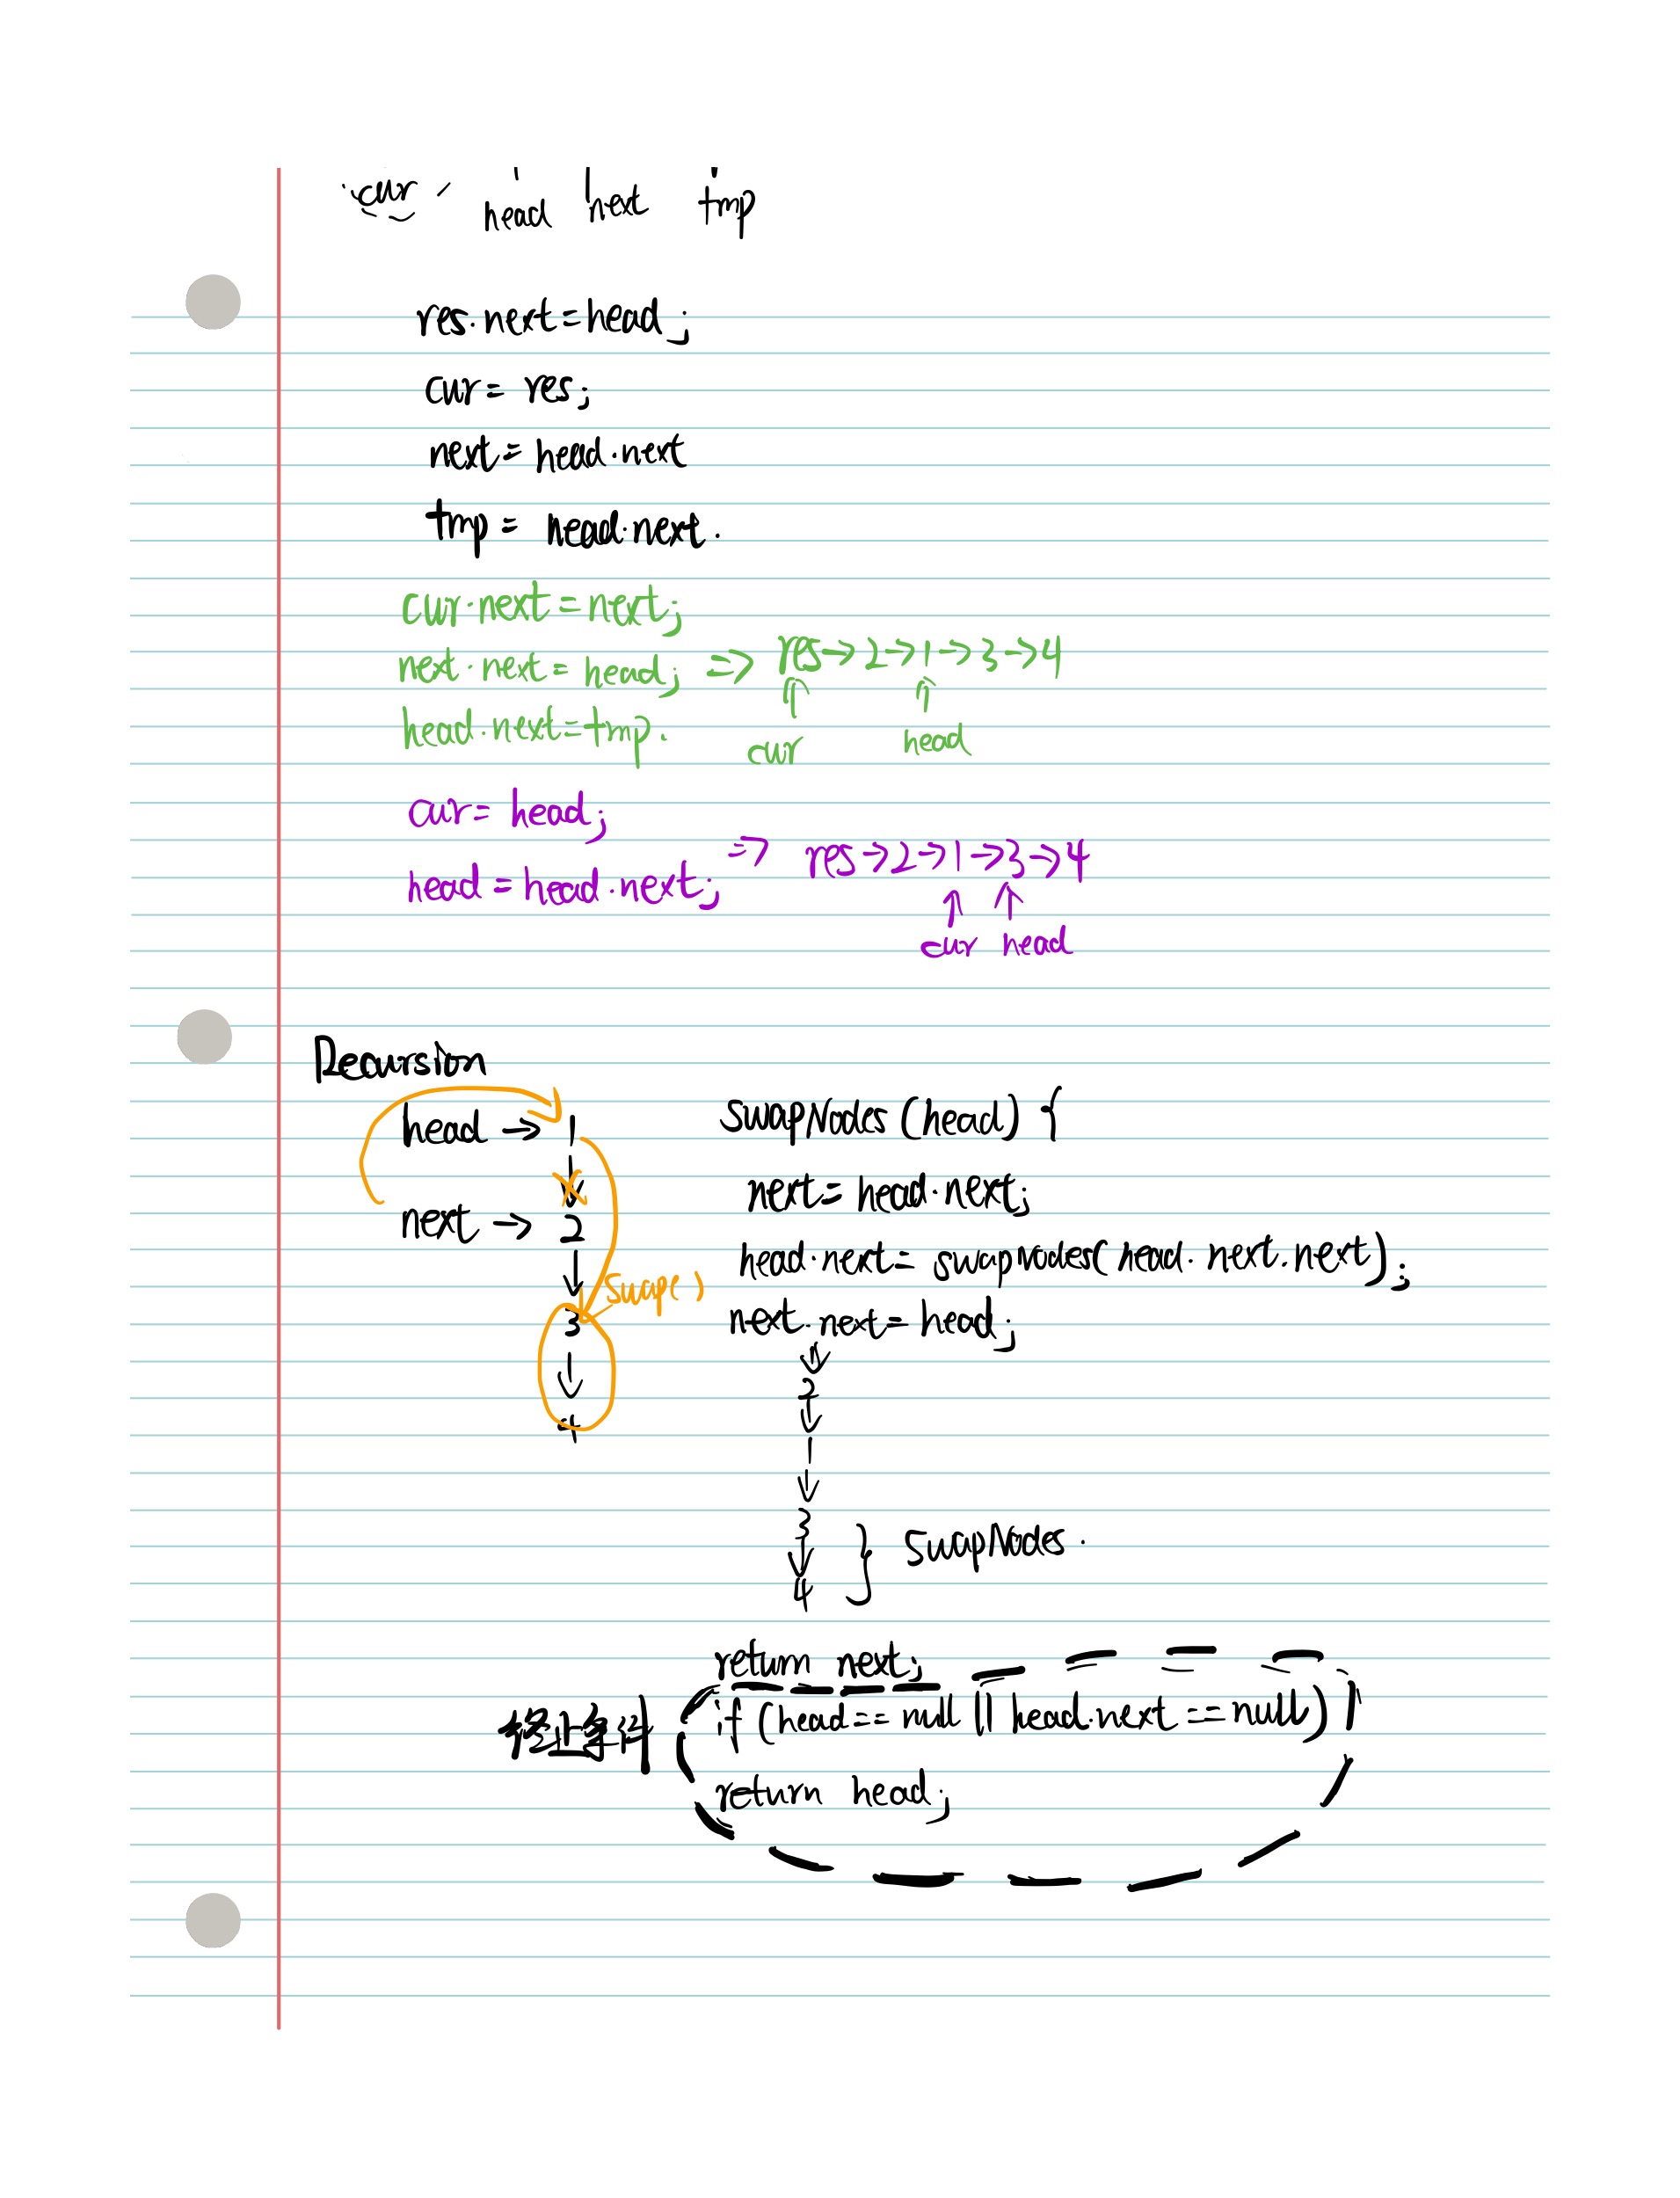 cur head next tmp
res.next=head;
cur=res;
next=head.next
tmp=head.next.
cur.next=next;
next.next=head; => res→2→1→3→4
head.next=tmp. cur head
cur=head;
head=head.next; => res→2→1→3→4
cur head
Recursion
head → 1
next → 2
swap()
3
4
swapNodes(head) {
next=head.next;
head.next=swapNodes(head.next.next);
next.next=head;
2
1
3
4
} swapNodes.
return next;
终止条件 if (head==null || head.next==null)
return head;